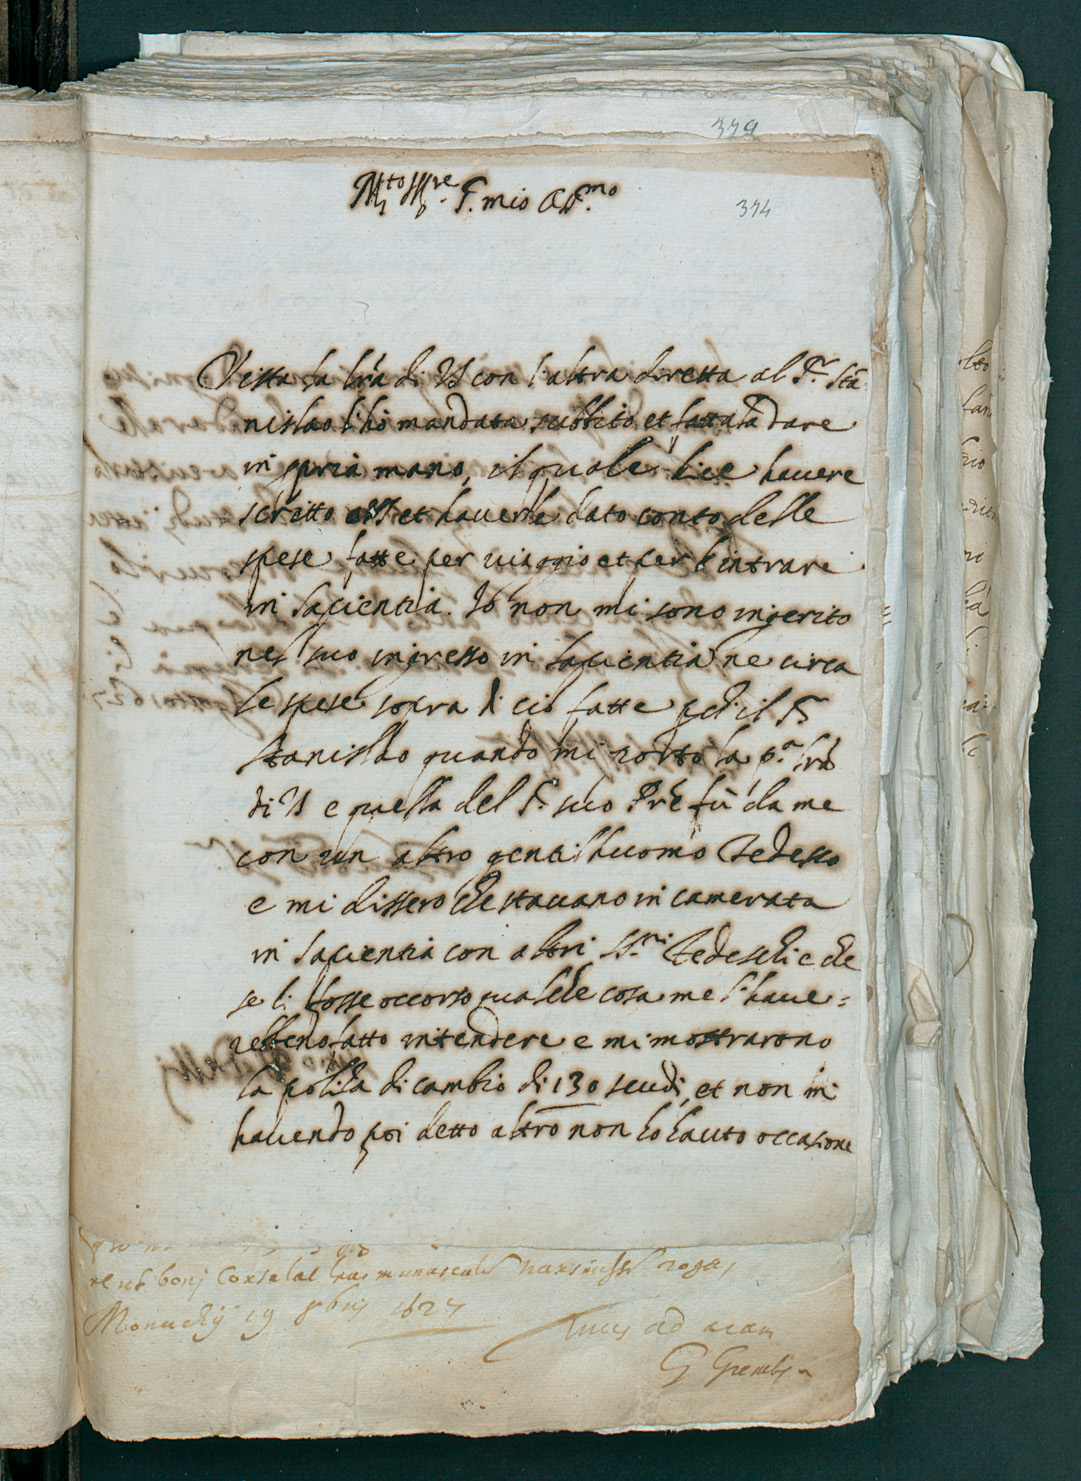 379
374
M.to Ill.re S.r mio Oss.mo
Vista la l'ra di VS con l'altra diretta al S.r Sta
nislao l'hò mandata subbito et fattala dare
in ppria mano, il quale dice havere
scritto à VS et haverle dato conto delle
spese fatte per viaggio et per l'intrare
in Sapientia. Io non mi sono ingerito
nel suo ingresso in Sapientia ne circa
le spese sopra di ciò fatte pche il S.r
Stanislao quando mi portò la p.a l'ra
di VS e quella del S.r suo Pre fù da me
con un altro gentilhuomo Tedesco
e mi dissero che stavano in camerata
in Sapientia con altri SS.ri Tedeschi e che
se li fosse occorso qualche cosa me l'have=
rebbeno fatto intendere e mi mostrarono
la poliza di cambio di 130 scudi, et non mi
havendo poi detto altro non hò hauto occasione
re ut boni consulat has transmissi rogas
Monachij 19 8bris 1627
Tuus ad aram
G